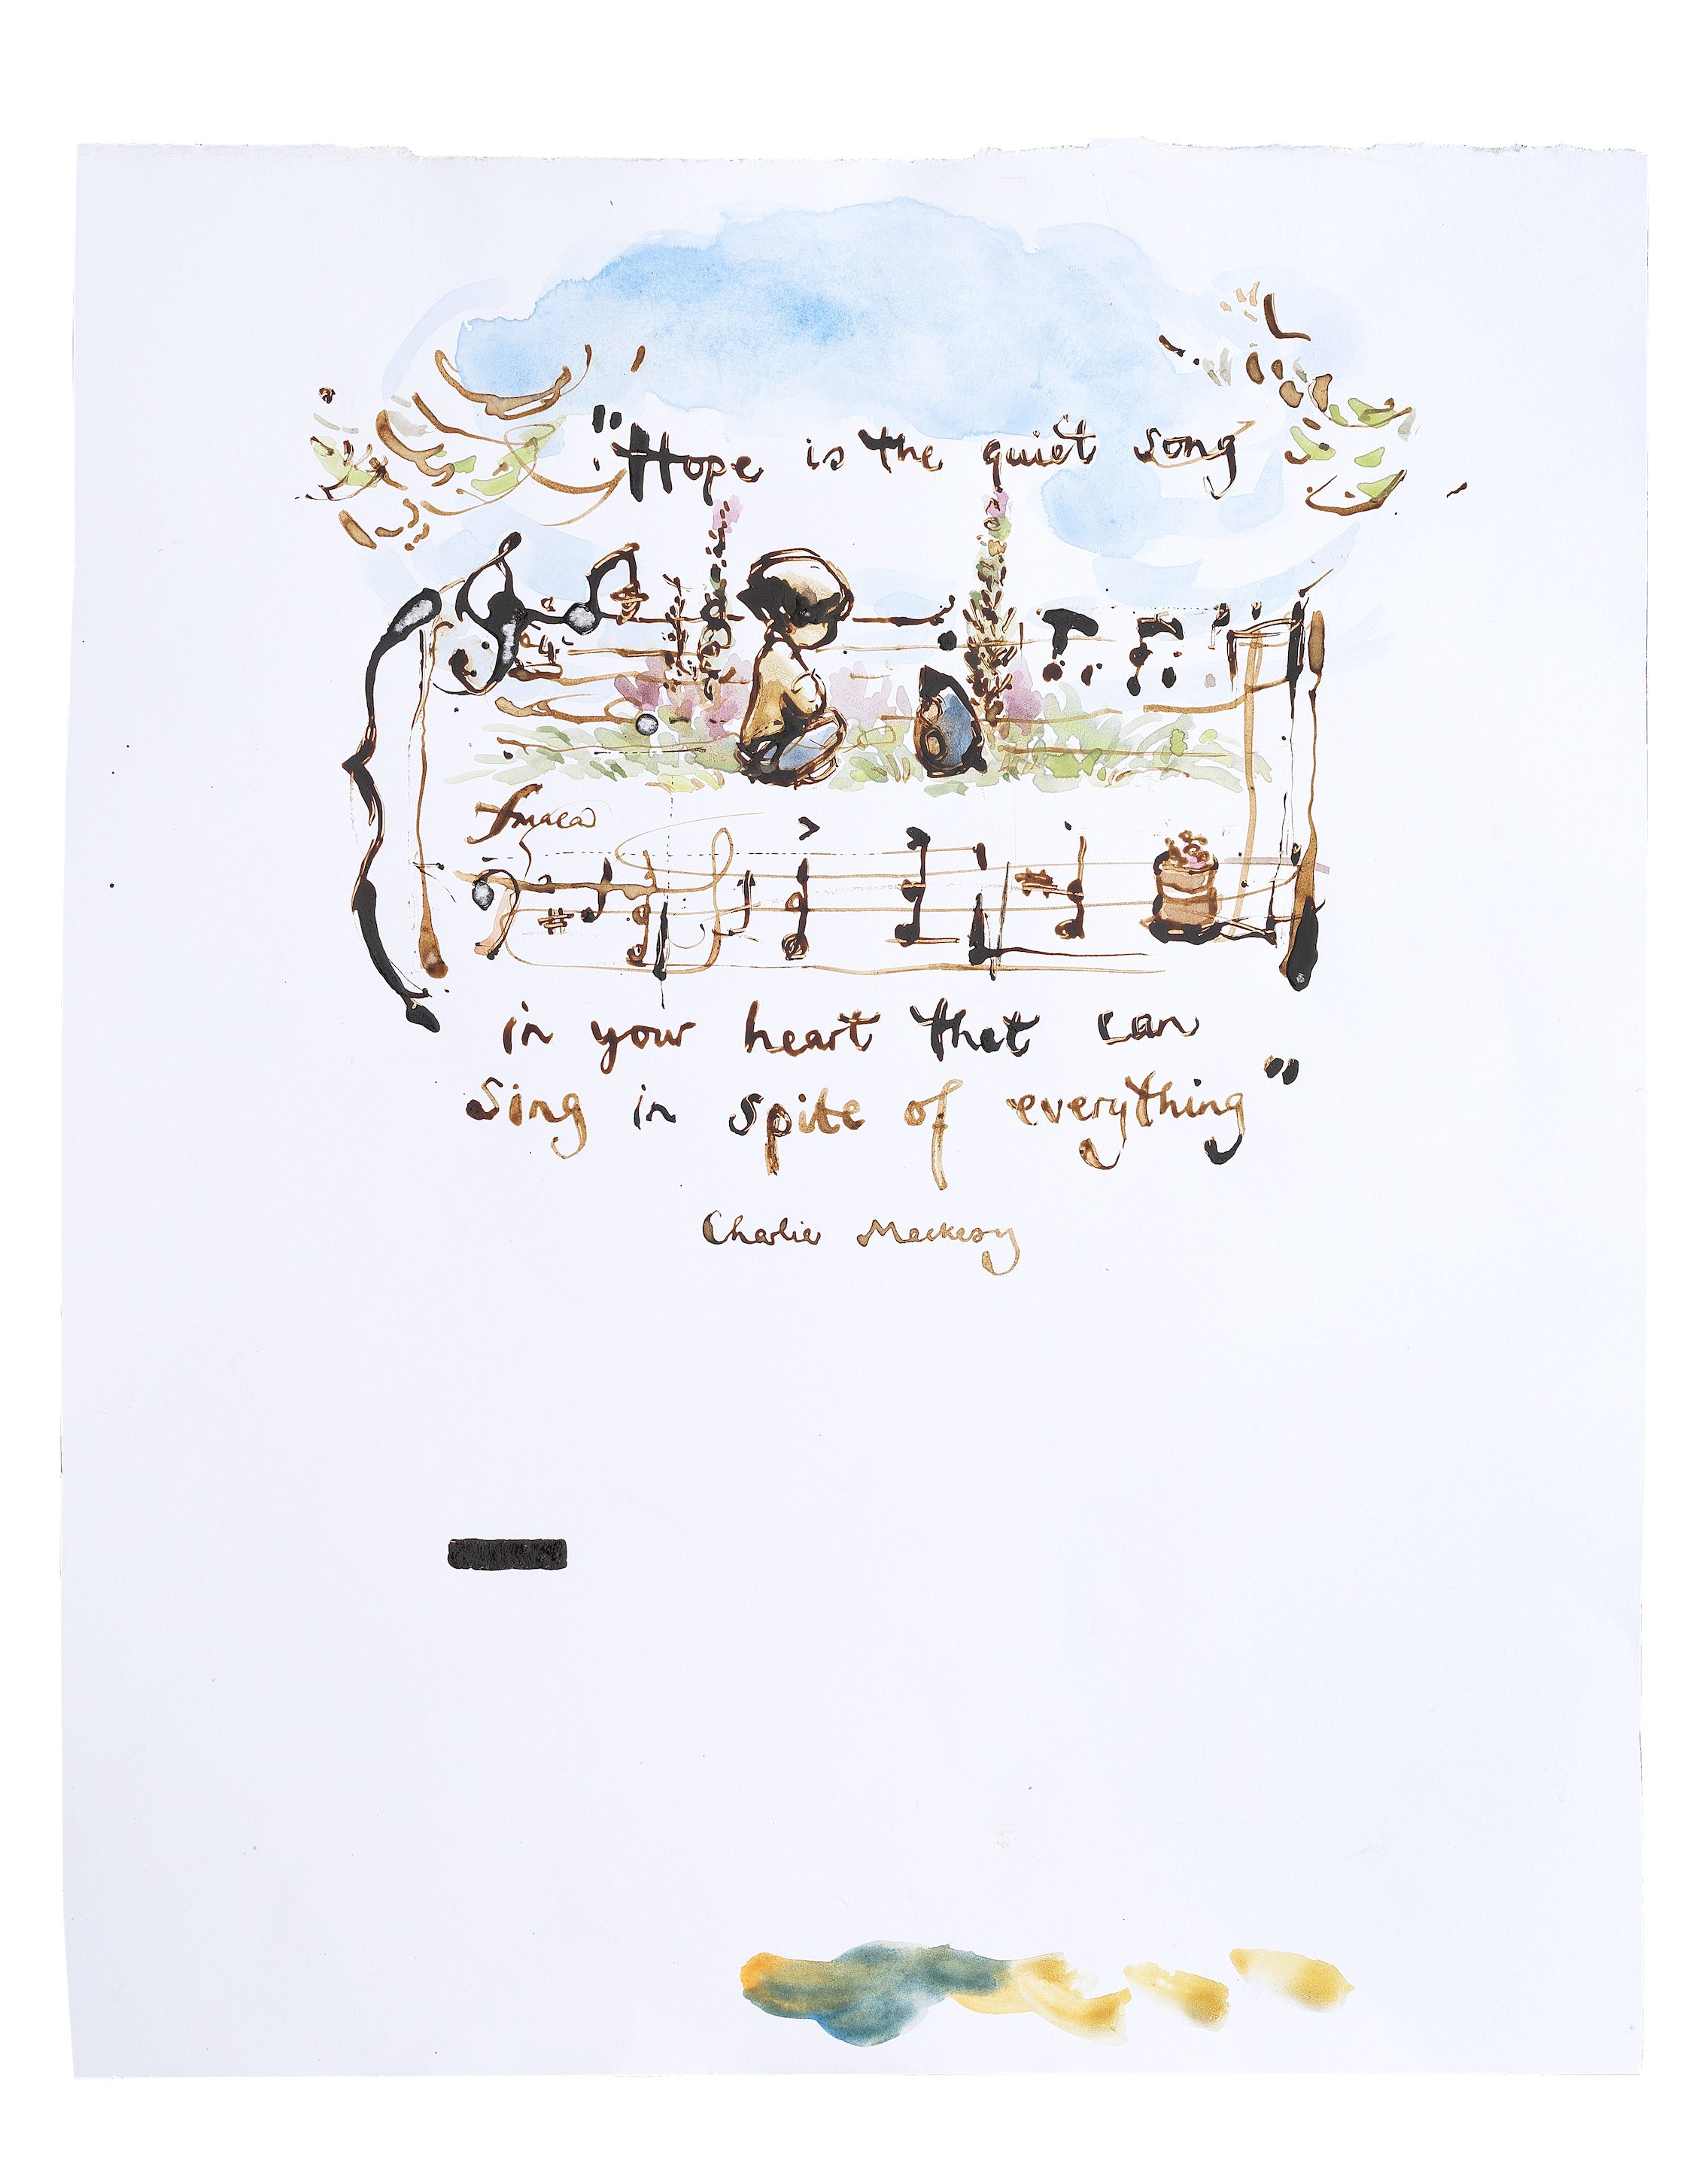 "Hope is the quiet song
in your heart that can
Sing in spite of everything"
Charlie Mackesy